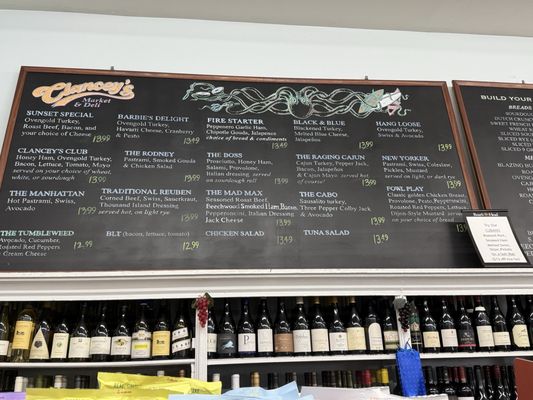 Clancey's
Market & Deli
SUNSET SPECIAL
Ovengold Turkey,
Roast Beef, Bacon, and
your choice of Cheese
13.99
CLANCEY'S CLUB
Honey Ham, Ovengold Turkey,
Bacon, Lettuce, Tomato, Mayo
served on your choice of rye,
wheat, or sourdough
13.99
THE MANHATTAN
Hot Pastrami, Swiss,
Avocado
13.99
THE TUMBLEWEED
Avocado, Cucumber,
Roasted Red Peppers,
& Cream Cheese
12.99
BARBIE'S DELIGHT
Ovengold Turkey,
Havarti Cheese, Cranberry
& Pesto
13.99
THE RODNEY
Pastrami, Smoked Gouda
& Chicken Salad
13.99
TRADITIONAL REUBEN
Corned Beef, Swiss, Sauerkraut
Thousand Island Dressing
served hot, on light rye
13.99
BLT (bacon, lettuce, tomato)
12.99
FIRE STARTER
Pepperoni, Garlic Ham,
Chipotle Gouda, Jalapeños
choice of bread & condiments
13.99
THE BOSS
Prosciutto, Honey Ham,
Salami, Provolone,
Italian dressing
served on your choice of bread
13.99
THE MAD MAX
Seasoned Roast Beef,
Beechwood Smoked Ham, Bacon,
Pepperoncini, Italian Dressing
Jack Cheese
13.99
CHICKEN SALAD
13.49
BLACK & BLUE
Blackened Turkey,
Melted Blue Cheese,
Jalapeños
13.99
THE RAGING CAJUN
Cajun Turkey, Pepper Jack,
& Cajun Mayo
served hot
of course!
13.99
THE CABO
Sausalito turkey,
Three Pepper Colby Jack
& Avocado
13.99
TUNA SALAD
13.49
HANG LOOSE
Ovengold Turkey,
Swiss & Avocado
13.99
NEW YORKER
Pastrami, Swiss, Coleslaw,
Pickles, Mustard
served hot, on light or dark rye
13.99
FOWL PLAY
Classic golden Chicken Breast,
Provolone, Pesto, Pepperoncini
Roasted Red Peppers, Lettuce
Dijon-Style Mustard
served on your choice of bread
13.99
BUILD YOUR
BREADS
DUTCH CRUNCH
SWEET FRENCH